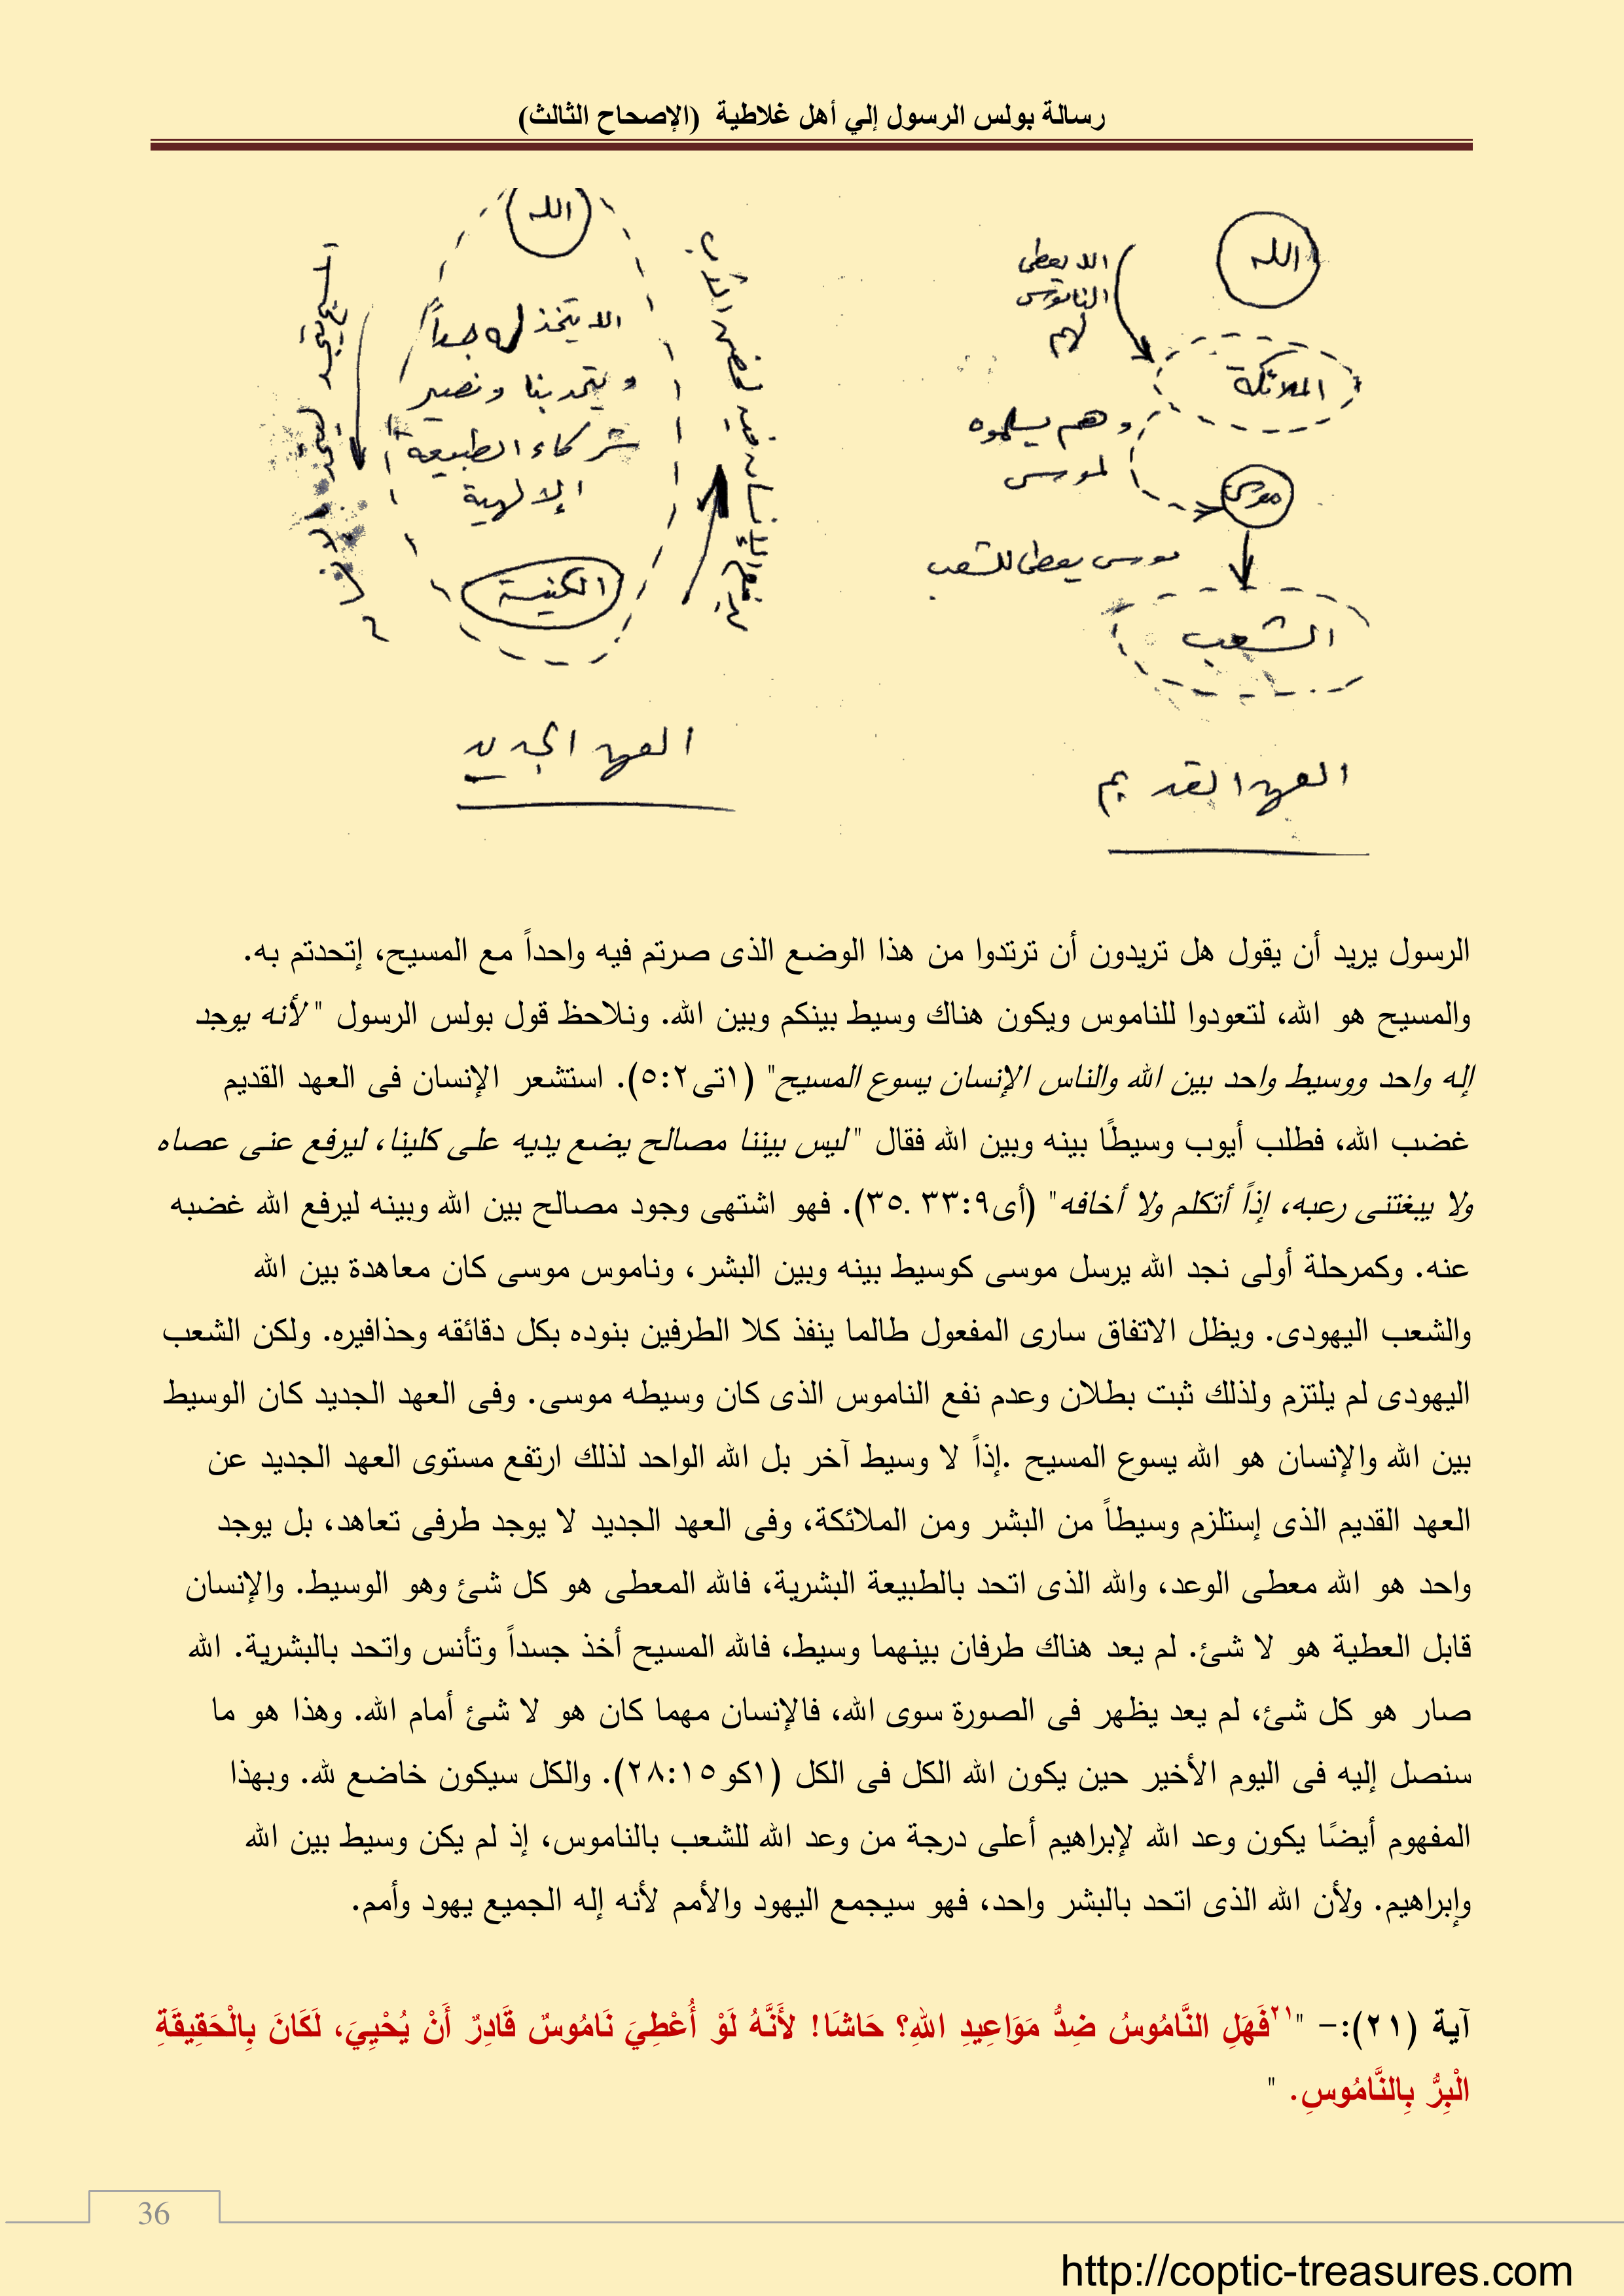 رسالة بولس الرسول إلي أهل غلاطية (الإصحاح الثالث)
الله
الله يعطى
الناموس
لهم
الملائكة
وهم يسلموه
لموسى
موسى
موسى يعطى للشعب
الشعب
العهد القديم
الله
الله يتخذ له جسداً
ويتحد بنا ونصير
شركاء الطبيعة
الإلهية
الكنيسة
العهد الجديد
الرسول يريد أن يقول هل تريدون أن ترتدوا من هذا الوضع الذى صرتم فيه واحداً مع المسيح، إتحدتم به.
والمسيح هو الله، لتعودوا للناموس ويكون هناك وسيط بينكم وبين الله. ونلاحظ قول بولس الرسول "لأنه يوجد
إله واحد ووسيط واحد بين الله والناس الإنسان يسوع المسيح" (١تى٥:٢). استشعر الإنسان فى العهد القديم
غضب الله، فطلب أيوب وسيطًا بينه وبين الله فقال "ليس بيننا مصالح يضع يديه على كلينا، ليرفع عنى عصاه
ولا يبغتنى رعبه، إذاً أتكلم ولا أخافه" (أى٣٣:٩ .٣٥). فهو اشتهى وجود مصالح بين الله وبينه ليرفع الله غضبه
عنه. وكمرحلة أولى نجد الله يرسل موسى كوسيط بينه وبين البشر، وناموس موسى كان معاهدة بين الله
والشعب اليهودى. ويظل الاتفاق سارى المفعول طالما ينفذ كلا الطرفين بنوده بكل دقائقه وحذافيره. ولكن الشعب
اليهودى لم يلتزم ولذلك ثبت بطلان وعدم نفع الناموس الذى كان وسيطه موسى. وفى العهد الجديد كان الوسيط
بين الله والإنسان هو الله يسوع المسيح .إذاً لا وسيط آخر بل الله الواحد لذلك ارتفع مستوى العهد الجديد عن
العهد القديم الذى إستلزم وسيطاً من البشر ومن الملائكة، وفى العهد الجديد لا يوجد طرفى تعاهد، بل يوجد
واحد هو الله معطى الوعد، والله الذى اتحد بالطبيعة البشرية، فالله المعطى هو كل شئ وهو الوسيط. والإنسان
قابل العطية هو لا شئ. لم يعد هناك طرفان بينهما وسيط، فالله المسيح أخذ جسداً وتأنس واتحد بالبشرية. الله
صار هو كل شئ، لم يعد يظهر فى الصورة سوى الله، فالإنسان مهما كان هو لا شئ أمام الله. وهذا هو ما
سنصل إليه فى اليوم الأخير حين يكون الله الكل فى الكل (١كو٢٨:١٥). والكل سيكون خاضع لله. وبهذا
المفهوم أيضًا يكون وعد الله لإبراهيم أعلى درجة من وعد الله للشعب بالناموس، إذ لم يكن وسيط بين الله
وإبراهيم. ولأن الله الذى اتحد بالبشر واحد، فهو سيجمع اليهود والأمم لأنه إله الجميع يهود وأمم.
آية (٢١):- "٢١فَهَلِ النَّامُوسُ ضِدُّ مَوَاعِيدِ اللهِ؟ حَاشَا! لأَنَّهُ لَوْ أُعْطِيَ نَامُوسٌ قَادِرٌ أَنْ يُحْيِيَ، لَكَانَ بِالْحَقِيقَةِ
الْبِرُّ بِالنَّامُوسِ. "
36
http://coptic-treasures.com